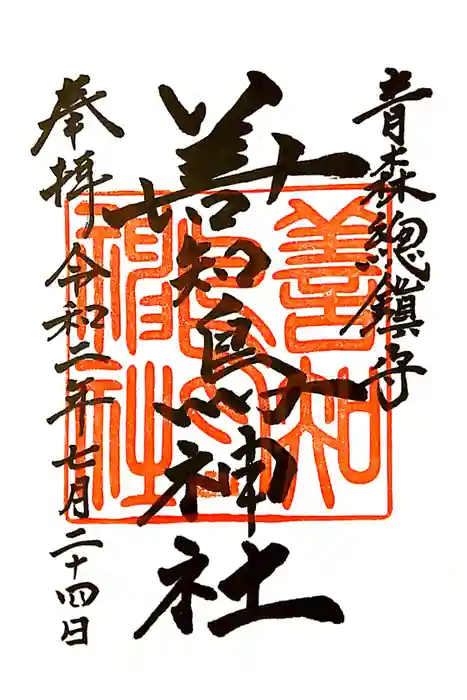 青森総鎮守
善知鳥神社
奉拝 令和二年七月二十四日
善知
鳥
神社